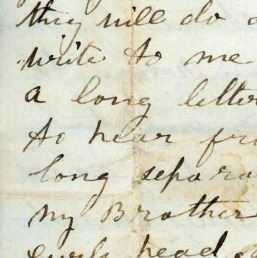 they will do a
write to me
a long letter
to hear fro
long separa
my Brother
head